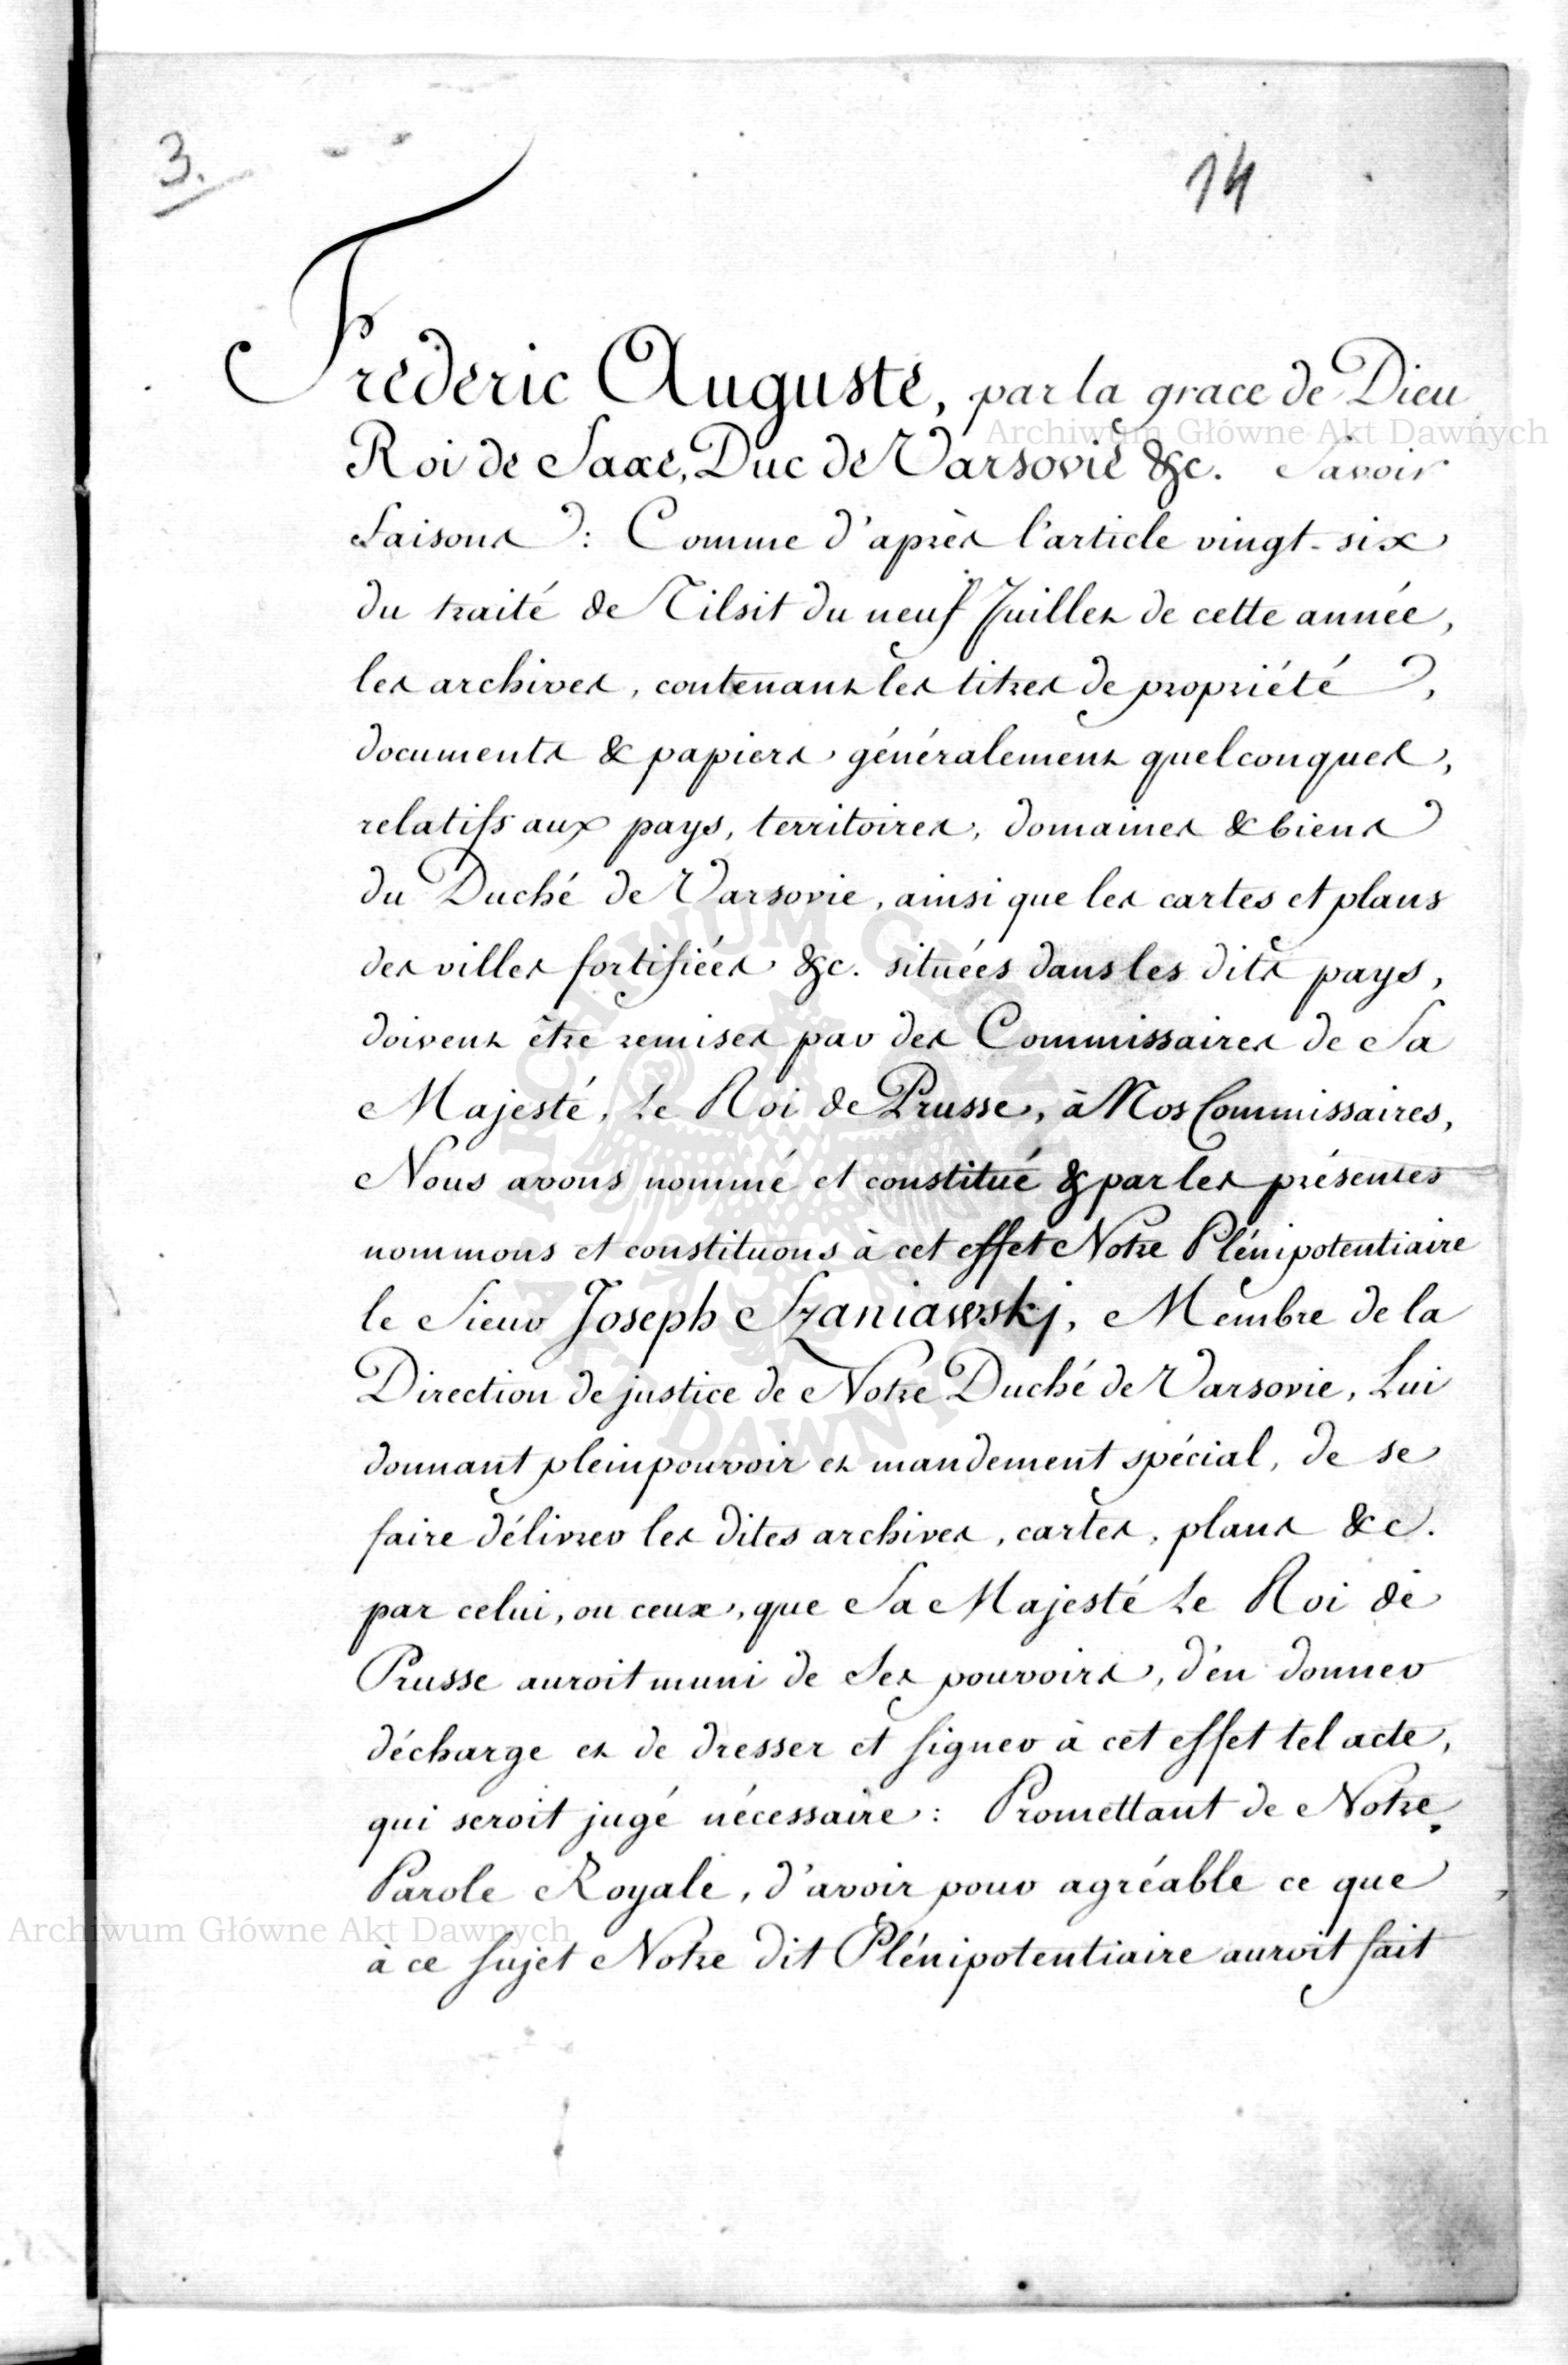 3.
14
Frédéric Auguste, par la grace de Dieu
Archiwum Główne Akt Dawnych
Roi de Saxe, Duc de Varsovie &c. Savoir
faisons: Comme d'après l'article vingt-six
du traité de Tilsit du neuf Juillet de cette année,
les archives, contenant les titres de propriété,
documents & papiers généralement quelconques,
relatifs aux pays, territoires, domaines & biens
du Duché de Varsovie, ainsi que les cartes et plans
des villes fortifiées &c. situées dans les dits pays,
doivent être remises par des Commissaires de Sa
Majesté, Le Roi de Prusse, à Nos Commissaires,
Nous avons nommé et constitué & par les présentes
nommons et constituons à cet effet Notre Plénipotentiaire
le Sieur Joseph Szaniawskj, Membre de la
Direction de justice de Notre Duché de Varsovie, Lui
donnant pleinpouvoir et mandement spécial, de se
faire délivrer les dites archives, cartes, plans &c.
par celui, ou ceux, que Sa Majesté Le Roi de
Prusse auroit muni de Ses pouvoirs, d'en donner
décharge et de dresser et signer à cet effet tel acte,
qui seroit jugé nécessaire: Promettant de Notre
Parole Royale, d'avoir pour agréable ce que
Archiwum Główne Akt Dawnych
à ce sujet Notre dit Plénipotentiaire auroit fait
ARCHIWUM GŁÓWNE AKT DAWNYCH